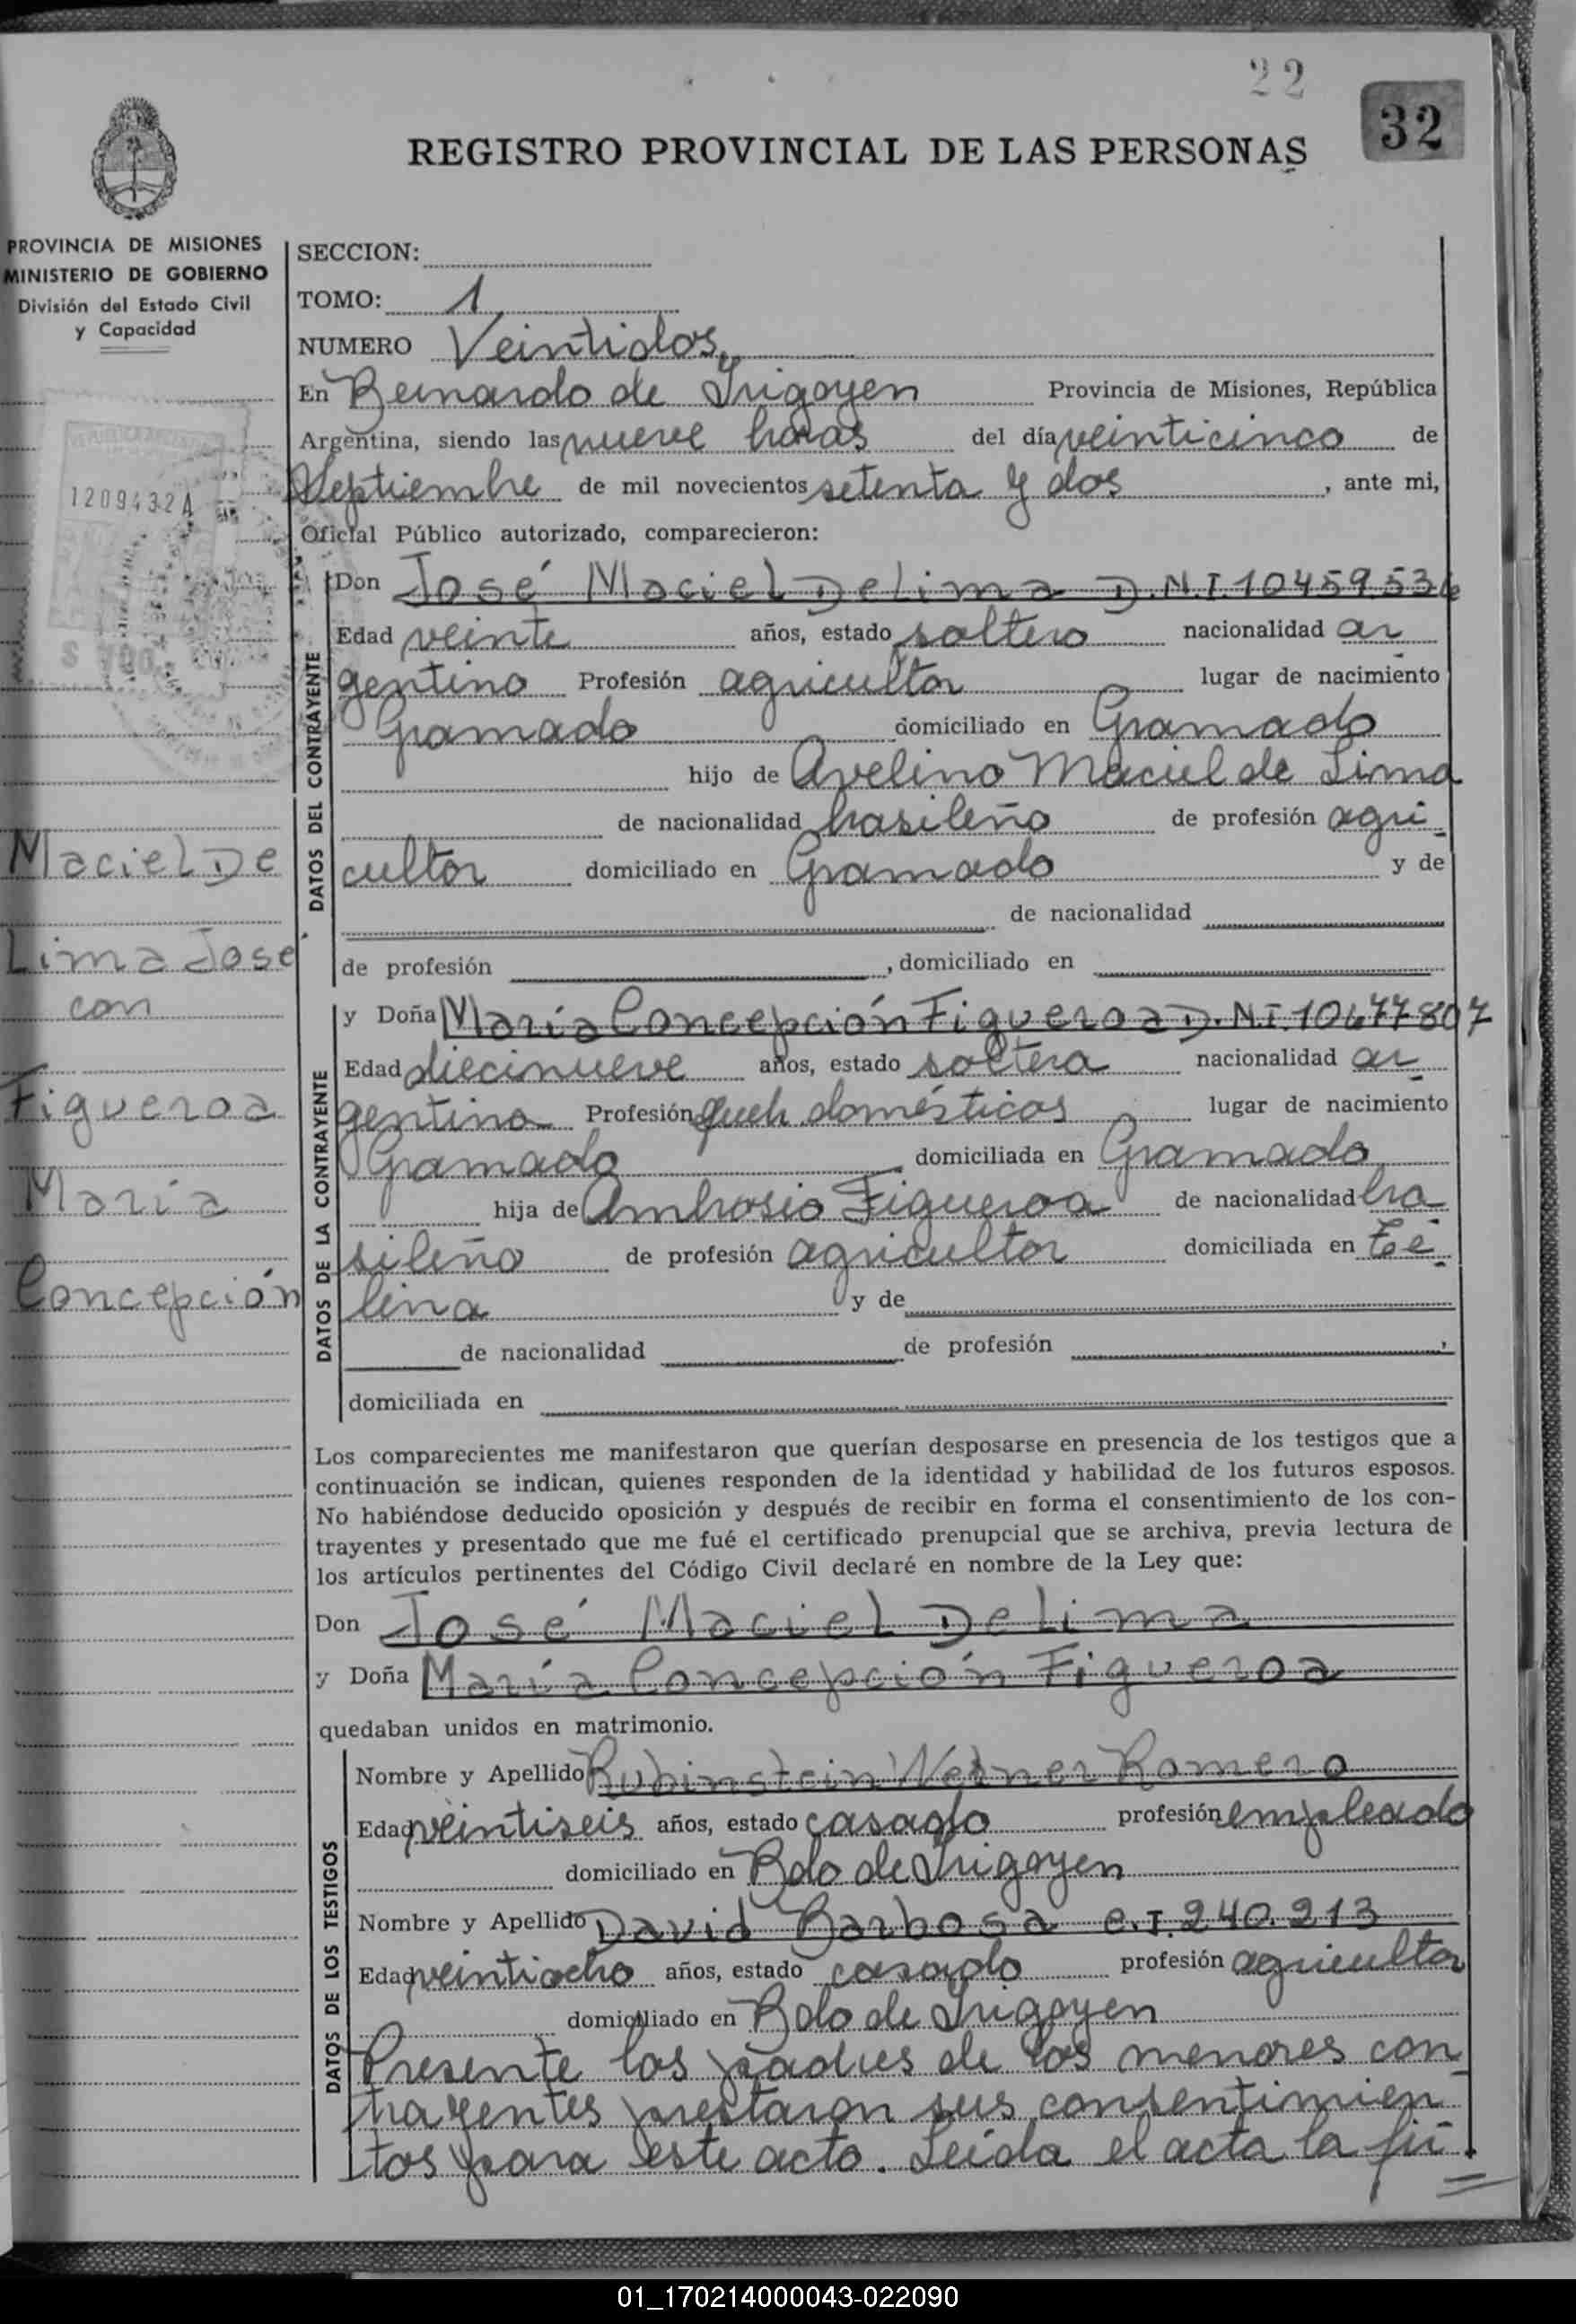 22
32
REGISTRO PROVINCIAL DE LAS PERSONAS
PROVINCIA DE MISIONES
MINISTERIO DE GOBIERNO
División del Estado Civil
y Capacidad
1209432A
Maciel De
Lima José
con
Figueroa
María
Concepción
SECCION:
TOMO: 1
NUMERO Veintidos,
En Bernardo de Irigoyen Provincia de Misiones, República
Argentina, siendo las nueve horas del día veinticinco de
Septiembre de mil novecientos setenta y dos, ante mi,
Oficial Público autorizado, comparecieron:
DATOS DEL CONTRAYENTE
Don José Maciel De Lima D.N.I. 10459.536
Edad veinte años, estado soltero nacionalidad ar
gentino Profesión agricultor lugar de nacimiento
Gramado domiciliado en Gramado
hijo de Avelino Maciel de Lima
de nacionalidad brasileño de profesión agri
cultor domiciliado en Gramado y de
de nacionalidad
de profesión , domiciliado en
DATOS DE LA CONTRAYENTE
y Doña María Concepción Figueroa D.N.I. 10677807
Edad diecinueve años, estado soltera nacionalidad ar
gentina Profesión queh. domésticos lugar de nacimiento
Gramado domiciliada en Gramado
hija de Ambrosio Figueroa de nacionalidad bra
sileño de profesión agricultor domiciliada en
lina y de
de nacionalidad de profesión ,
domiciliada en
Los comparecientes me manifestaron que querían desposarse en presencia de los testigos que a
continuación se indican, quienes responden de la identidad y habilidad de los futuros esposos.
No habiéndose deducido oposición y después de recibir en forma el consentimiento de los con-
trayentes y presentado que me fué el certificado prenupcial que se archiva, previa lectura de
los artículos pertinentes del Código Civil declaré en nombre de la Ley que:
Don José Maciel De Lima
y Doña María Concepción Figueroa
quedaban unidos en matrimonio.
DATOS DE LOS TESTIGOS
Nombre y Apellido Rubinstein Werner Romero
Edad veintiseis años, estado casado profesión empleado
domiciliado en Bdo de Irigoyen
Nombre y Apellido David Barbosa C.I. 240.213
Edad veintiocho años, estado casado profesión agricultor
domiciliado en Bdo de Irigoyen
Presente los padres de los menores con
trayentes prestaron sus consentimien
tos para este acto. Leída el acta la fir
01_170214000043-022090